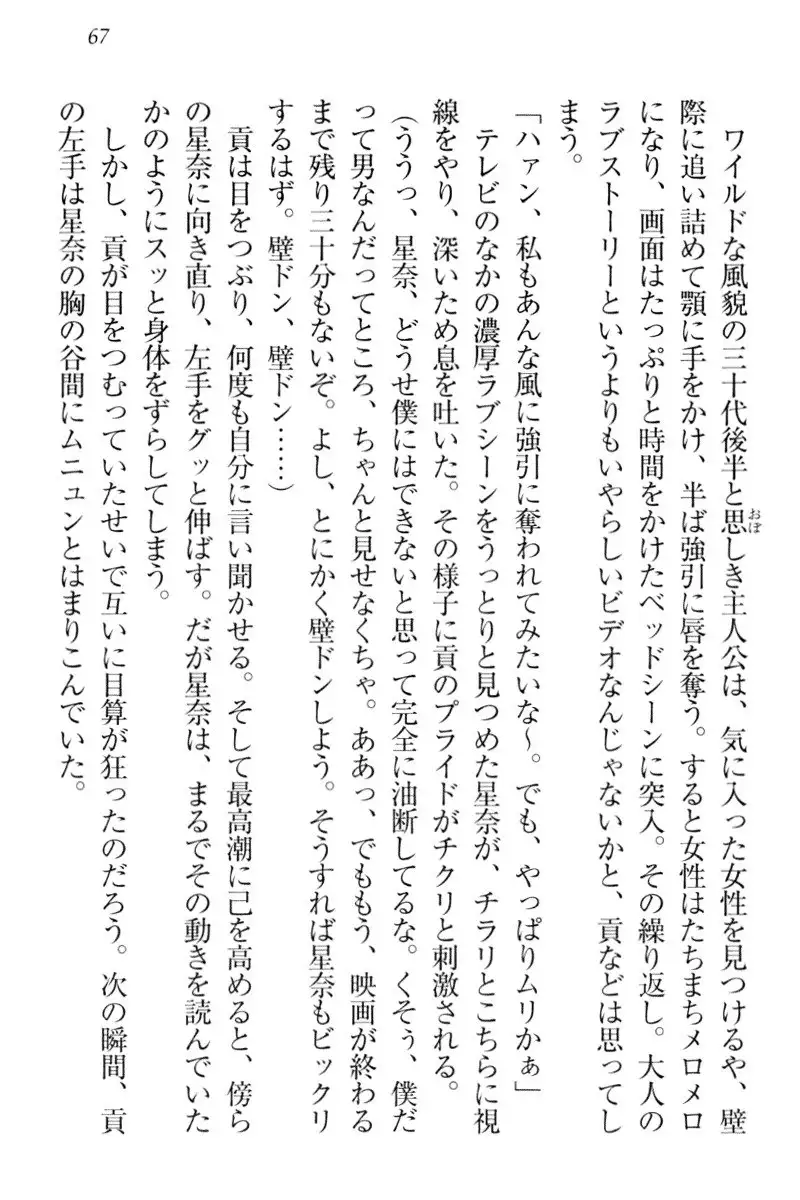 67
ワイルドな風貌の三十代後半と思しき主人公は、気に入った女性を見つけるや、壁
おぼ
際に追い詰めて顎に手をかけ、半ば強引に唇を奪う。すると女性はたちまちメロメロ
になり、画面はたっぷりと時間をかけたベッドシーンに突入。その繰り返し。大人の
ラブストーリーというよりもいやらしいビデオなんじゃないかと、貢などは思ってし
まう。
「ハァン、私もあんな風に強引に奪われてみたいな〜。でも、やっぱりムリかぁ」
テレビのなかの濃厚ラブシーンをうっとりと見つめた星奈が、チラリとこちらに視
線をやり、深いため息を吐いた。その様子に貢のプライドがチクリと刺激される。
（ううっ、星奈、どうせ僕にはできないと思って完全に油断してるな。くそぅ、僕だ
って男なんだってところ、ちゃんと見せなくちゃ。ああっ、でももう、映画が終わる
まで残り三十分もないぞ。よし、とにかく壁ドンしよう。そうすれば星奈もビックリ
するはず。壁ドン、壁ドン……）
貢は目をつぶり、何度も自分に言い聞かせる。そして最高潮に己を高めると、傍ら
の星奈に向き直り、左手をグッと伸ばす。だが星奈は、まるでその動きを読んでいた
かのようにスッと身体をずらしてしまう。
しかし、貢が目をつむっていたせいで互いに目算が狂ったのだろう。次の瞬間、貢
の左手は星奈の胸の谷間にムニュンとはまりこんでいた。